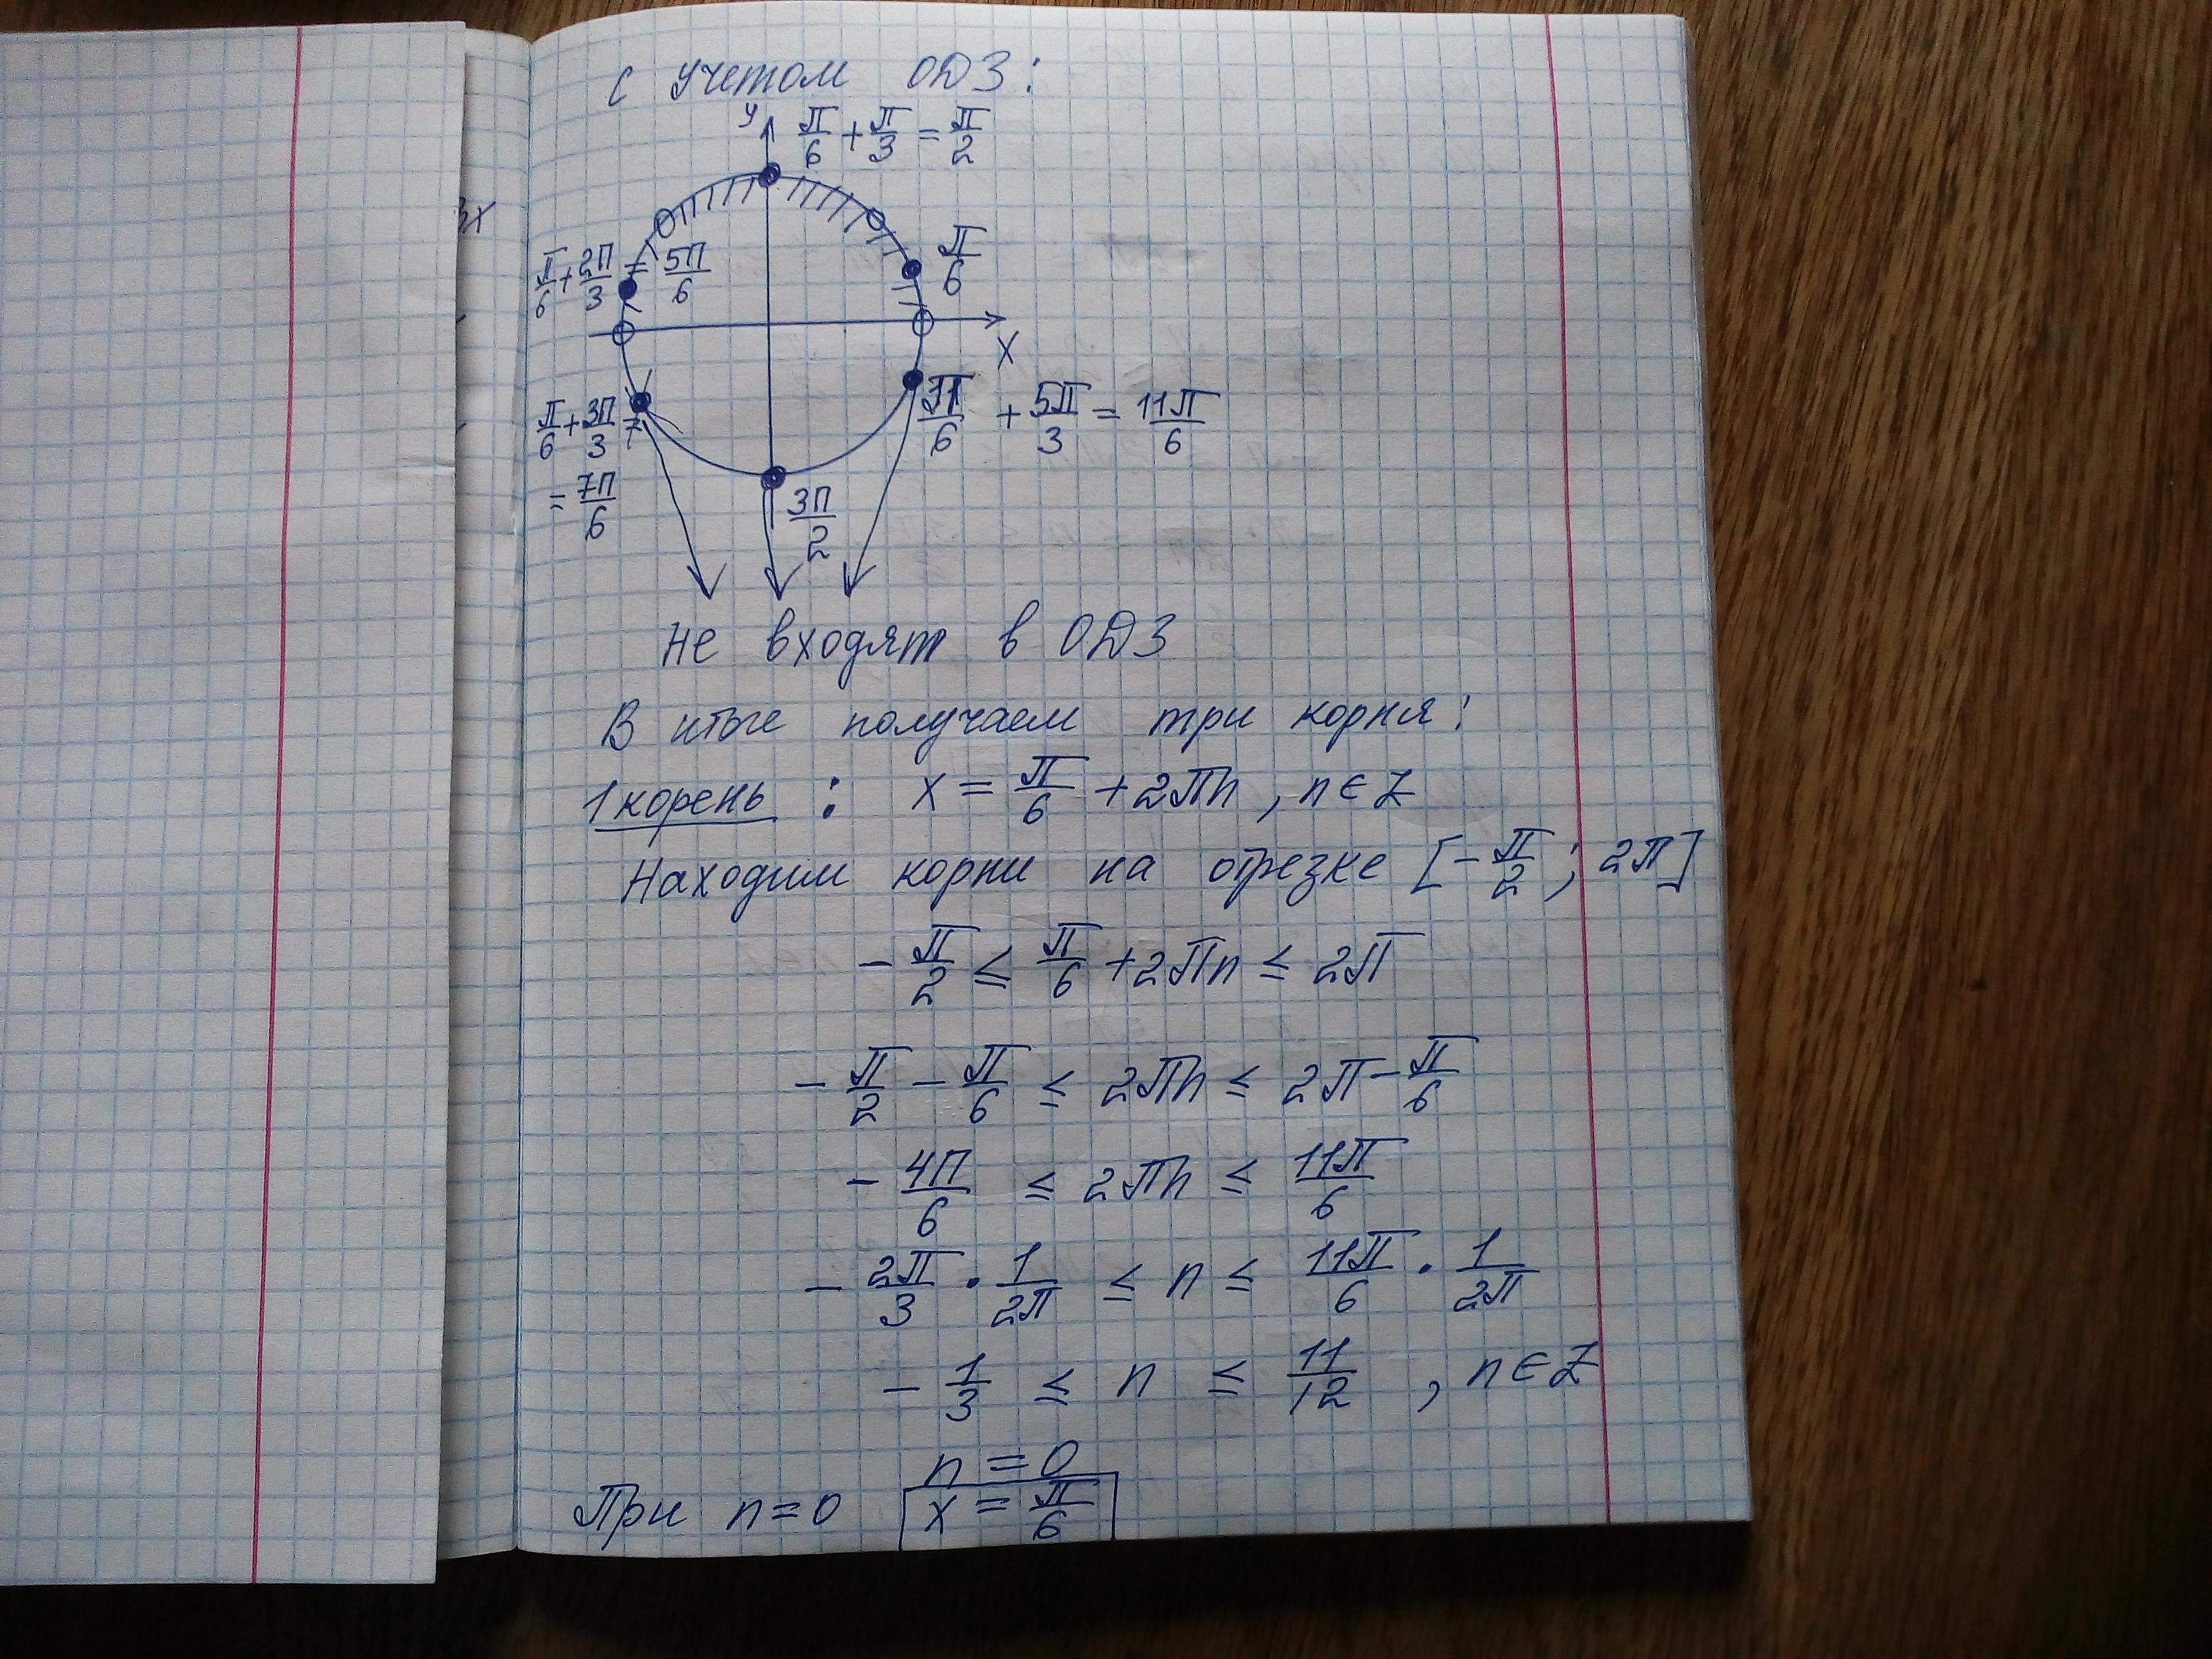 с учетом ОДЗ:
y
π/6 + π/3 = π/2
3x
π/6
π/6 + 2π/3 = 5π/6
x
π/6 + 3π/3 =
= 7π/6
π/6 + 5π/3 = 11π/6
3π/2
Не входят в ОДЗ
В итоге получаем три корня:
1 корень : x = π/6 + 2πn , n ∈ Z
Находим корни на отрезке [-π/2 ; 2π]
- π/2 ≤ π/6 + 2πn ≤ 2π
- π/2 - π/6 ≤ 2πn ≤ 2π - π/6
- 4π/6 ≤ 2πn ≤ 11π/6
- 2π/3 · 1/2π ≤ n ≤ 11π/6 · 1/2π
- 1/3 ≤ n ≤ 11/12 , n ∈ Z
n = 0
При n = 0 x = π/6